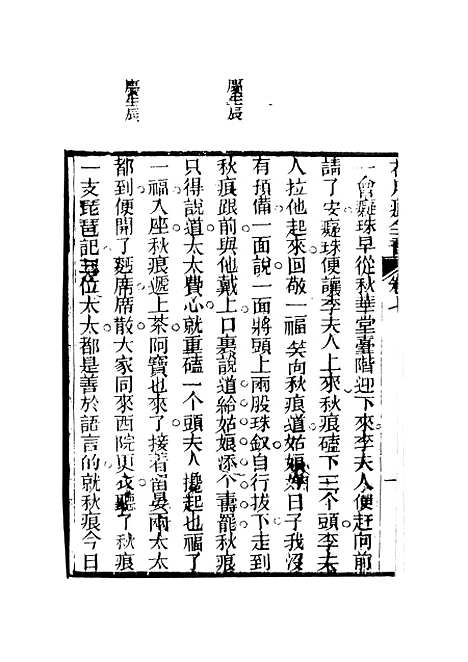 花月痕全書 卷七 一
一會癡珠早從秋華堂臺階迎下來李夫人便赶向前
請了安癡珠便讓李夫人上來秋痕磕下三个頭李夫
人拉他起來回敬一福笑向秋痕道姑娘好日子我沒
有預備一面說一面將頭上兩股珠釵自行拔下走到
秋痕跟前與他戴上口裏說道給姑娘添个壽罷秋痕
慶生辰
只得說道太太費心就重磕一个頭夫人攙起也福了
一福入座秋痕遞上茶阿寶也來了接着留晏兩太太
都到便開了麫席席散大家同來西院更衣聽了秋痕
慶生辰
一支琵琶記三位太太都是善於語言的就秋痕今日